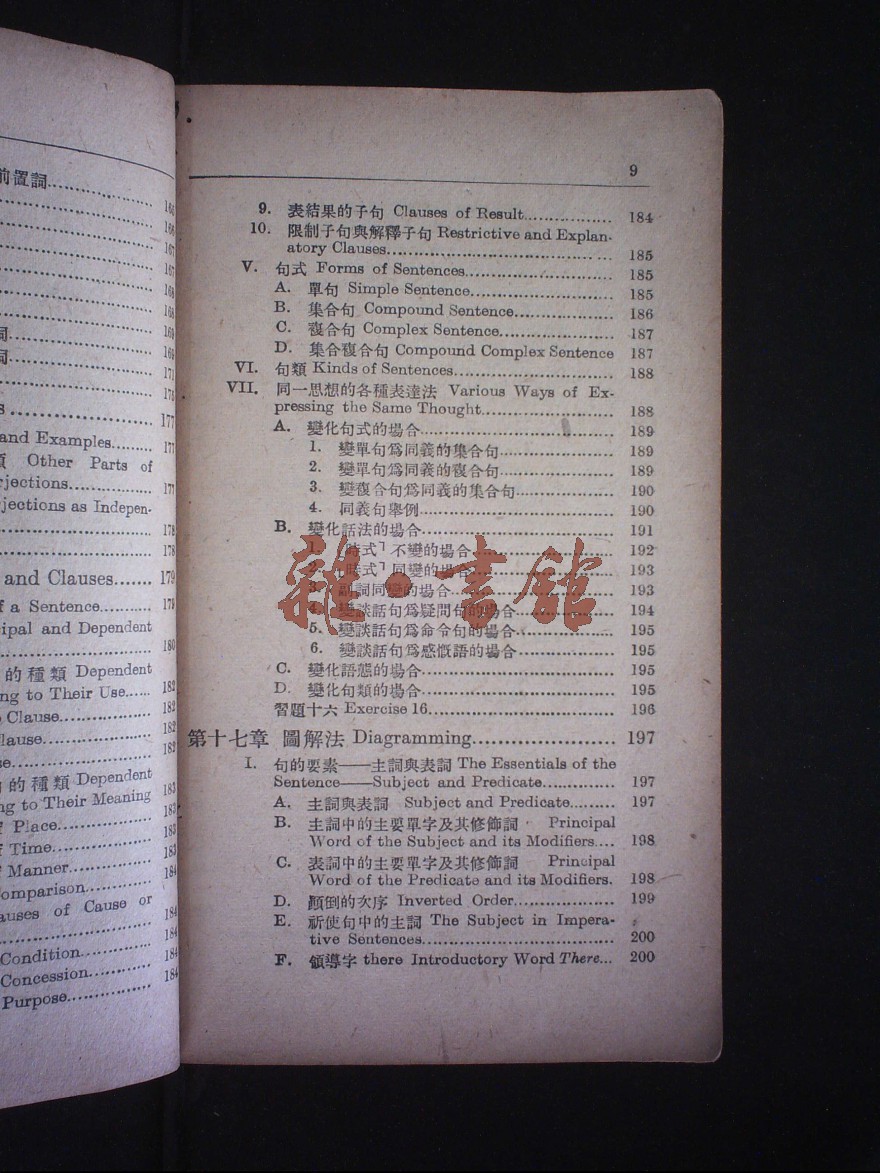 前置詞
164
166
167
167
168
168
169
詞 169
詞 171
175
177
and Examples 177
Other Parts of
rjections 177
jections as Indepen-
178
178
and Clauses 179
f a Sentence 179
cipal and Dependent
180
的種類 Dependent
ng to Their Use 182
Clause 182
lause 182
se 182
的種類 Dependent
ng to Their Meaning 183
f Place 183
f Time 183
f Manner 183
omparison 184
auses of Cause or
184
Condition 184
Concession 184
Purpose 184
9
9. 表結果的子句 Clauses of Result 184
10. 限制子句與解釋子句 Restrictive and Explan-
atory Clauses 185
V. 句式 Forms of Sentences 185
A. 單句 Simple Sentence 185
B. 集合句 Compound Sentence 186
C. 複合句 Complex Sentence 187
D. 集合複合句 Compound Complex Sentence 187
VI. 句類 Kinds of Sentences 188
VII. 同一思想的各種表達法 Various Ways of Ex-
pressing the Same Thought 188
A. 變化句式的場合 189
1. 變單句爲同義的集合句 189
2. 變單句爲同義的複合句 189
3. 變複合句爲同義的集合句 190
4. 同義句舉例 190
B. 變化話法的場合 191
1. 「時式」不變的場合 192
2. 「時式」同變的場合 193
3. 副詞同變的場合 193
4. 變談話句爲疑問句的場合 194
5. 變談話句爲命令句的場合 195
6. 變談話句爲感慨語的場合 195
C. 變化語態的場合 195
D. 變化句類的場合 195
習題十六 Exercise 16 196
第十七章 圖解法 Diagramming 197
I. 句的要素——主詞與表詞 The Essentials of the
Sentence——Subject and Predicate 197
A. 主詞與表詞 Subject and Predicate 197
B. 主詞中的主要單字及其修飾詞 Principal
Word of the Subject and its Modifiers 198
C. 表詞中的主要單字及其修飾詞 Principal
Word of the Predicate and its Modifiers. 198
D. 顛倒的次序 Inverted Order 199
E. 祈使句中的主詞 The Subject in Impera-
tive Sentences 200
F. 領導字 there Introductory Word There 200
雜·書館